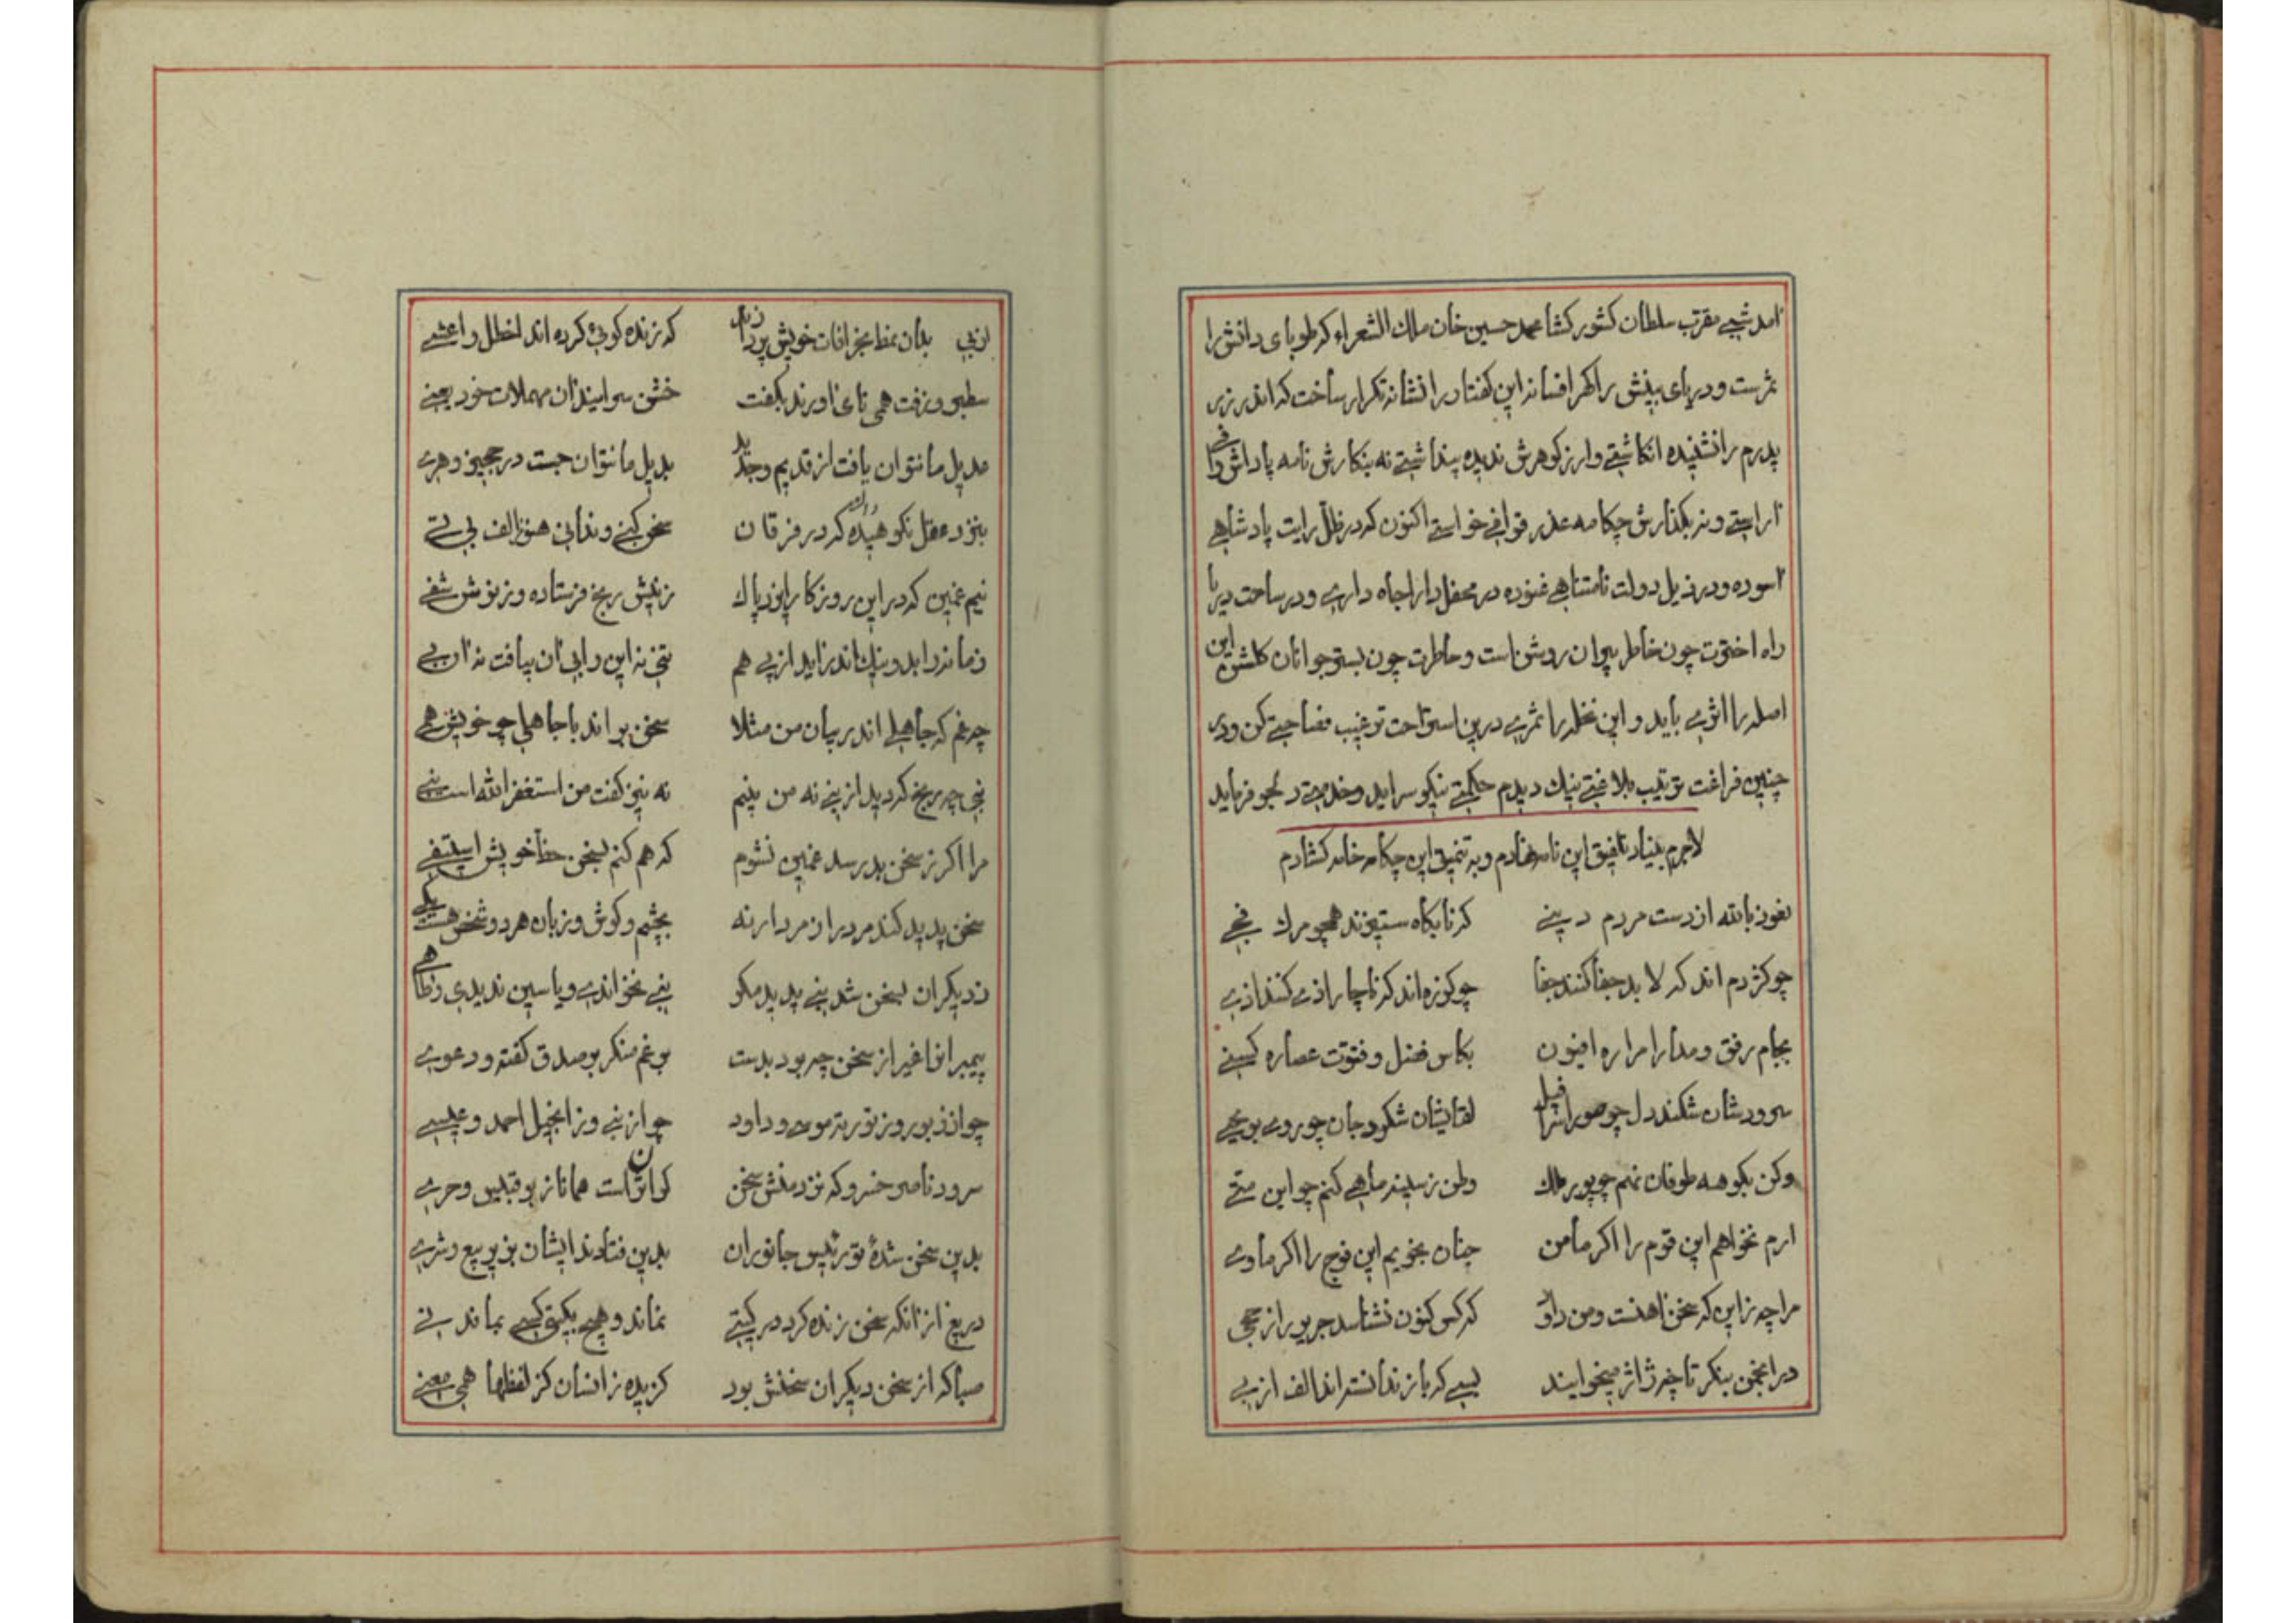 آمد شبی مقرب سلطان کشور کشا محمد حسین خان ملک الشعراء که طوبای دانش را
ثمرست و دریای بینش را گهر افسانه این گفتار را نشانه تکرار ساخت که اندرز
پدرم را نشنیده انکاشتی و ارز کوهرش ندیده پنداشتی نه بنکارش نامه پاداش
آراستی و نه بکذارش چکامه عذر قوافی خواستی اکنون که در ظل رایت پادشاهی
آسوده و در ذیل دولت نامتناهی غنوده در محفل دارا جاه داری و در ساحت دیر پا
راه اخترت چون خاطر پیران روشن است و خاطرت چون بستر جوانان کلشن این
اصل را اثری باید و این نخل را ثمری درین استراحت ترغیب فصاحتی کن و در
چنین فراغت ترتیب بلاغتی نیک دیدم حکمتی نیکو سراید و خدمتی دلجو فرماید
لاجرم بنیاد تلفیق این نامه نهادم و به تنمیق این چکامه خامه کشادم
نعوذ بالله از دست مردم دینی که ناگاه ستیزند همچو مرک فجی
چو کژدم اند که لابد جفا کنند جفا چو کرزه اند که ناچار اذی کنند اذی
بجام رفق و مدارا مراره افیون بکاس فضل و فتوت عصاره کسنی
سرودشان شکند دل چو صور اسرافیل لقایشان شکرد جان چو روی بویحیی
وکن بکوهه طوفان نهم چو پور ملک وطن ز سینه ماهی کنم چو ابن متی
ارم نخواهم این قوم را اکر مأمن جنان نجویم این فوج را اکر مأوی
مرا چه زاین که سخن آهنست و من داود که کس کنون نشناسد جریر را از جحی
در انجمن بنکر تا چه ژاژ میخوایند بسی که باز ندانسته اند الف از بی
از پی بدان نمط بخرافات خویش پردازند که زنده کوئی کرده اند اخطل و اعشی
سطبر و زفت همی نای آورند بکفت خشن سرایند آن مهملات خود یعنی
عدیل ما نتوان یافت از قدیم و جدید بدیل ما نتوان جست در حجیز و هری
بنزد عقل نکوهیده که در فرقان سخن کنی و ندانی هنوز الف بی تی
نیم غمین که در این روزکار ایزد پاک ز نیش رنج فرستاده و ز نوش شفی
زمانه زاید و نیک اندر آید از پی هم بتی نه این را بی آن بیافت نه آن بی
چه غم که جاهلی اندر بیان من مثلا سخن براند با جاهلی چو خویش همی
نبی چه رنج کر دید از بنی نه من بیتم نه نیز کفت من استغفر الله است نبی
مرا اکر ز سخن بد رسد غمین نشوم که هم کنم بسخن حظ خویش استیفی
سخن پدید کند مرد را ز مردار نه بچشم و کوش و زبان هر دو شخص هست یکی
ز دیکران بسخن شد نبی پدید مکو نبی نخواندی و یاسین ندیدی و طاهی
پیمبران را غیر از سخن چه بود بدست برغم منکر بر صدق گفته و دعوی
چو از زبور و ز توریة موسی و داود چو از نبی و ز انجیل احمد و عیسی
سرود ناصر خسرو که نزد منش سخن کران است همانا ز بوقبیس و حری
بدین سخن شدهٔ تو رئیس جانوران بدین فتادند ایشان بزیر بیع و شری
دریغ از آنکه سخن زنده کرد در کیتی نماند و هیچ بکیتی کسی نماند نی
صبا که از سخن دیکران سخنش بود کزیده زانسان کز لفظها همی معنی